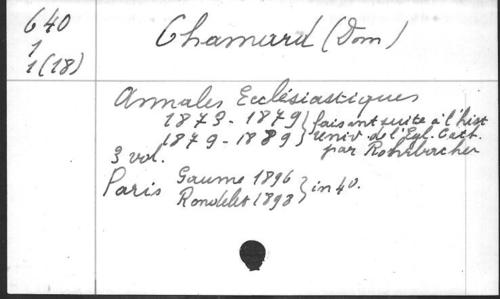 640
1
1(18)
Chamard (Dom)
Annales Ecclésiastiques
1873-1879 } faisant suite à l'hist
1879-1889 } univ. de l'Egl. Cath.
par Rohrbacher
3 vol.
Paris Gaume 1896 } in 4º.
Rondelet 1893